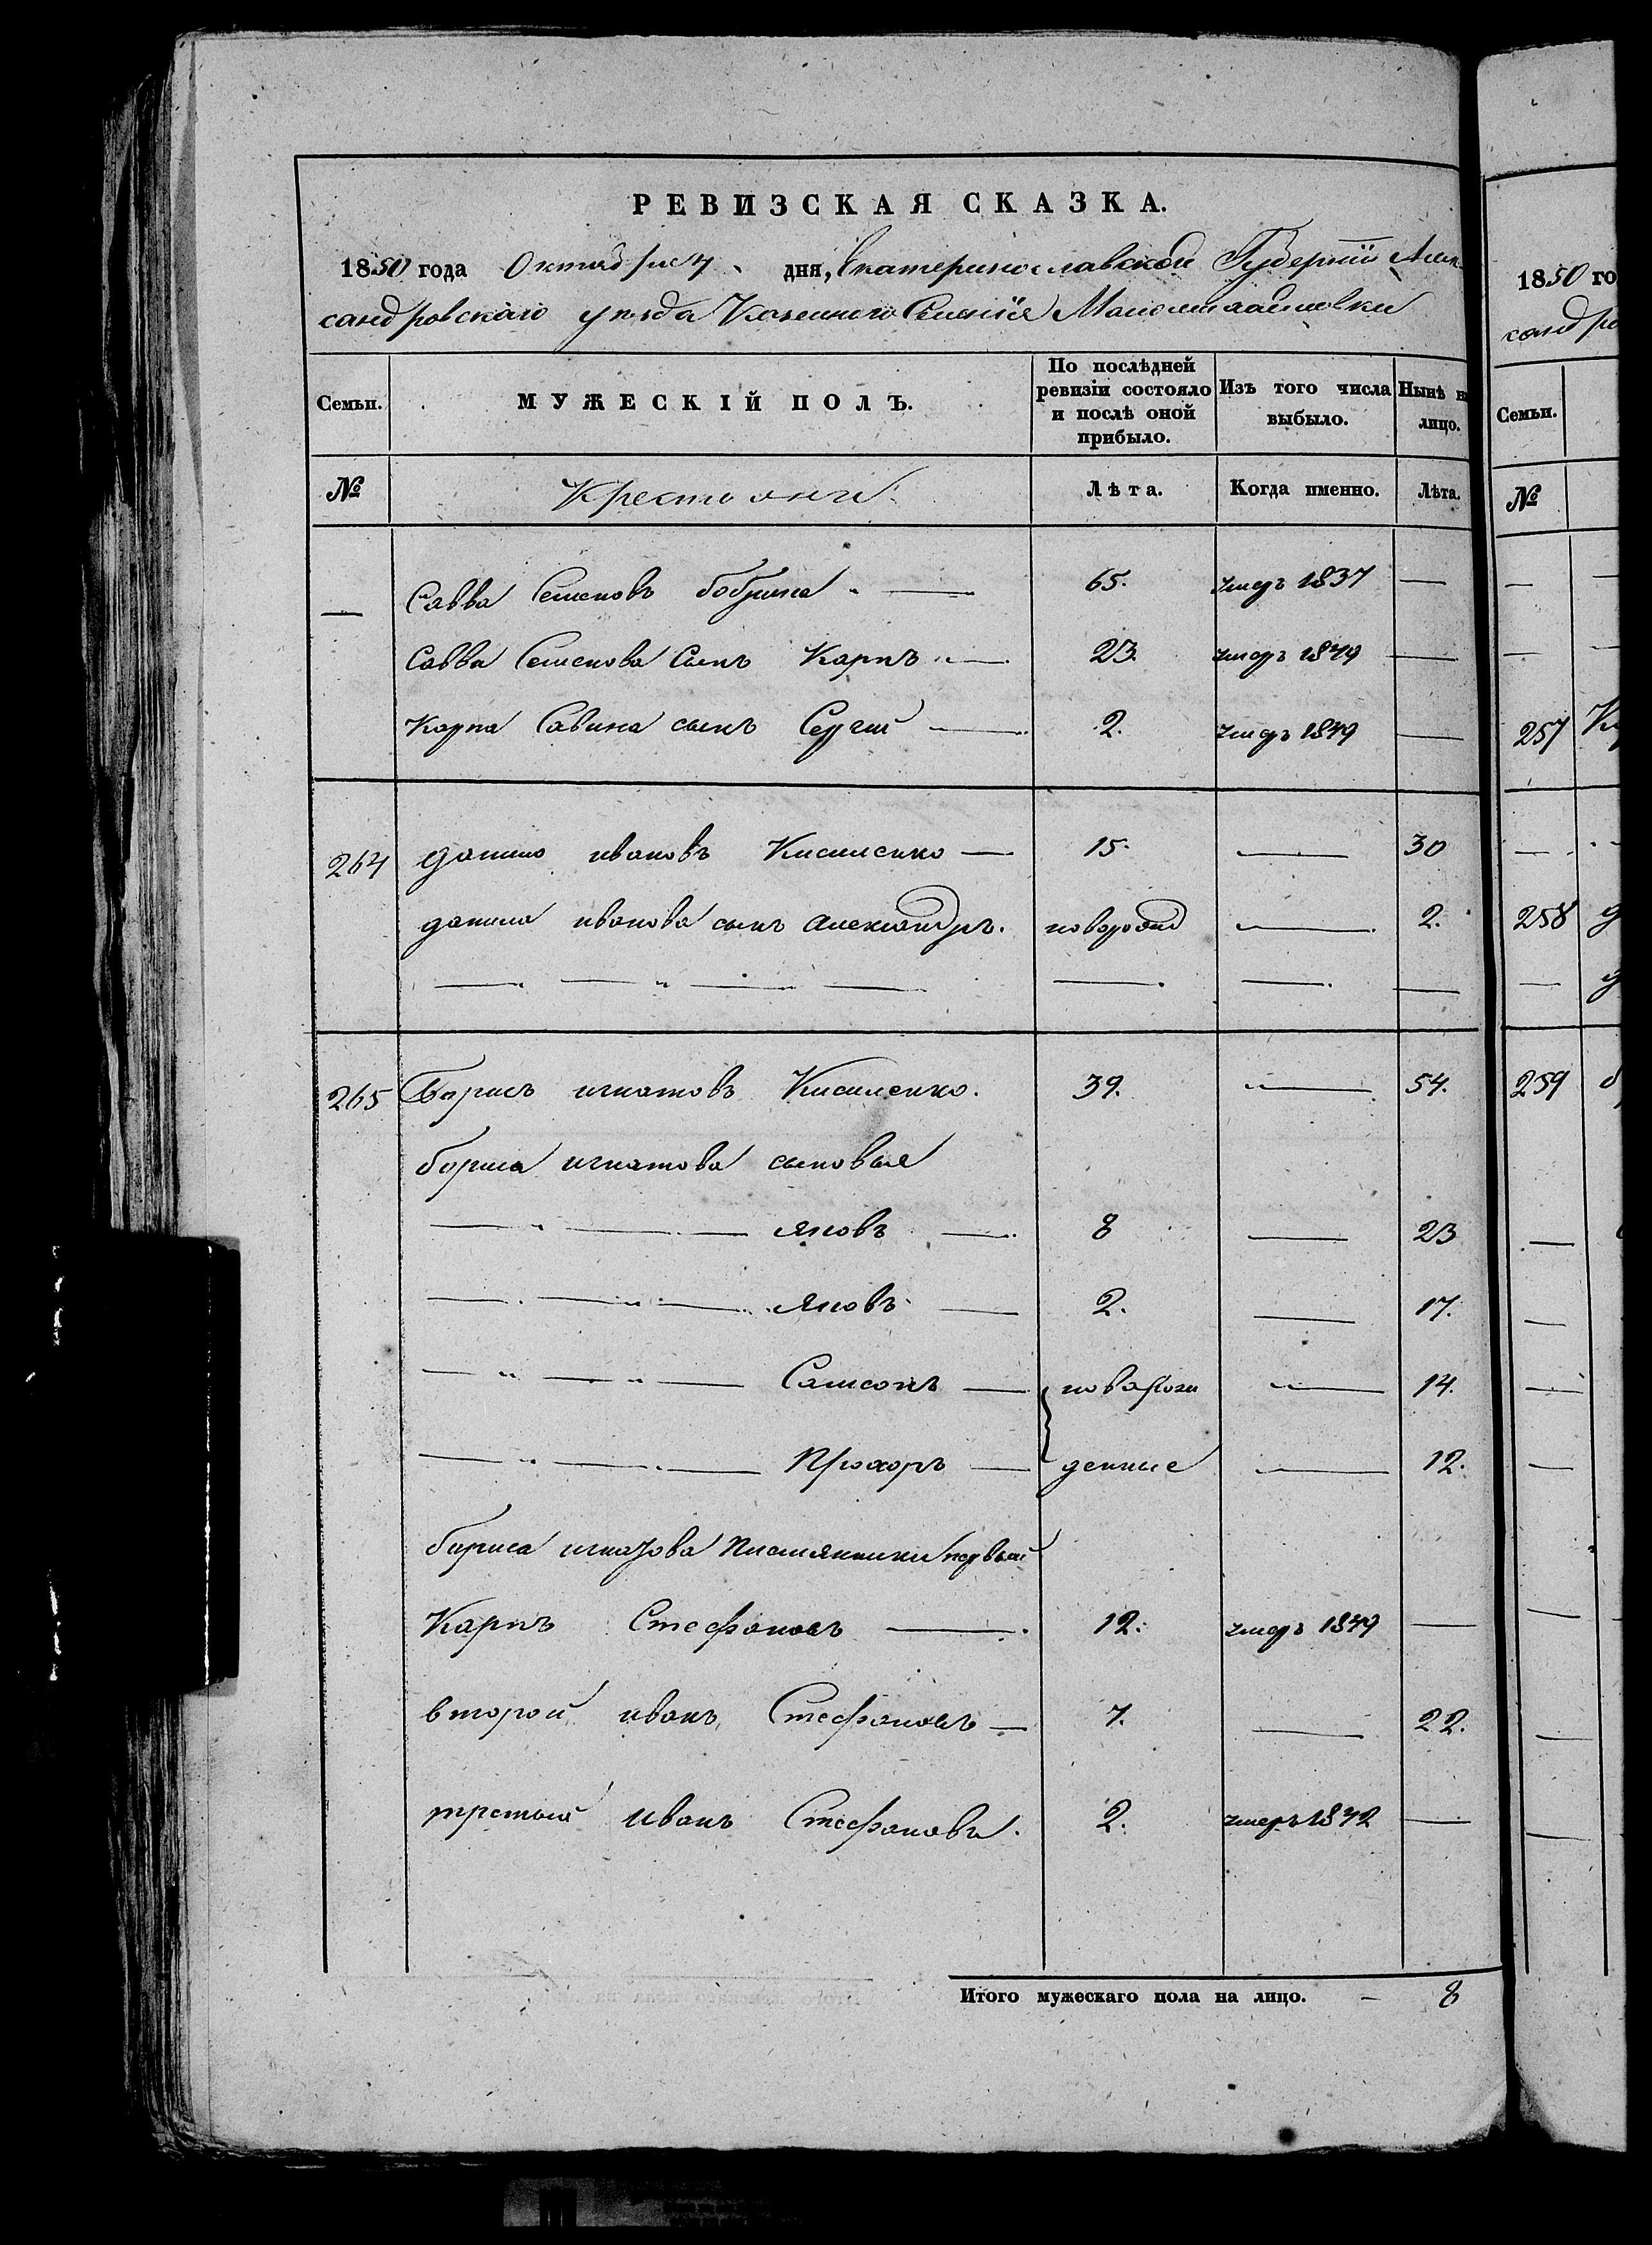 РЕВИЗСКАЯ СКАЗКА.
1850 года Октября 4 дня, Екатеринославской Губерніи Алек
сандровскаго уезда Казенного Селенія
Семьи. МУЖЕСКІЙ ПОЛЪ. По послѣдней ревизіи состояло и послѣ оной прибыло. Изъ того числа выбыло. Нынѣ на лицо.
№ Крестьяни Лѣта. Когда именно. Лѣта.
— Савва Семеновъ — 65. умеръ 1837 —
Савва Семенова Сынъ Карпъ — 23. умеръ 1849 —
Карпа Савина сынъ Сергий — 2. умеръ 1849 —
264 данило ивановъ Кисиленко — 15. — 30
данила иванова сынъ александръ. новорожд — 2.
265 Борисъ игнатовъ Кисиленко. 39. — 54.
бориса игнатова сыновья
— яковъ — 8 — 23
— яковъ — 2. — 17.
— Самсонъ — новорож — 14.
— Прохоръ — денные — 12.
бориса игнатова племянники первый
Карпъ Стефановъ — 12. умеръ 1849 —
второй иванъ Стефановъ — 7. — 22.
третьий иванъ Стефановъ. 2. умеръ 1842 —
Итого мужескаго пола на лицо. — 8
1850 го
сандро
Семьи.
№
257
258
259